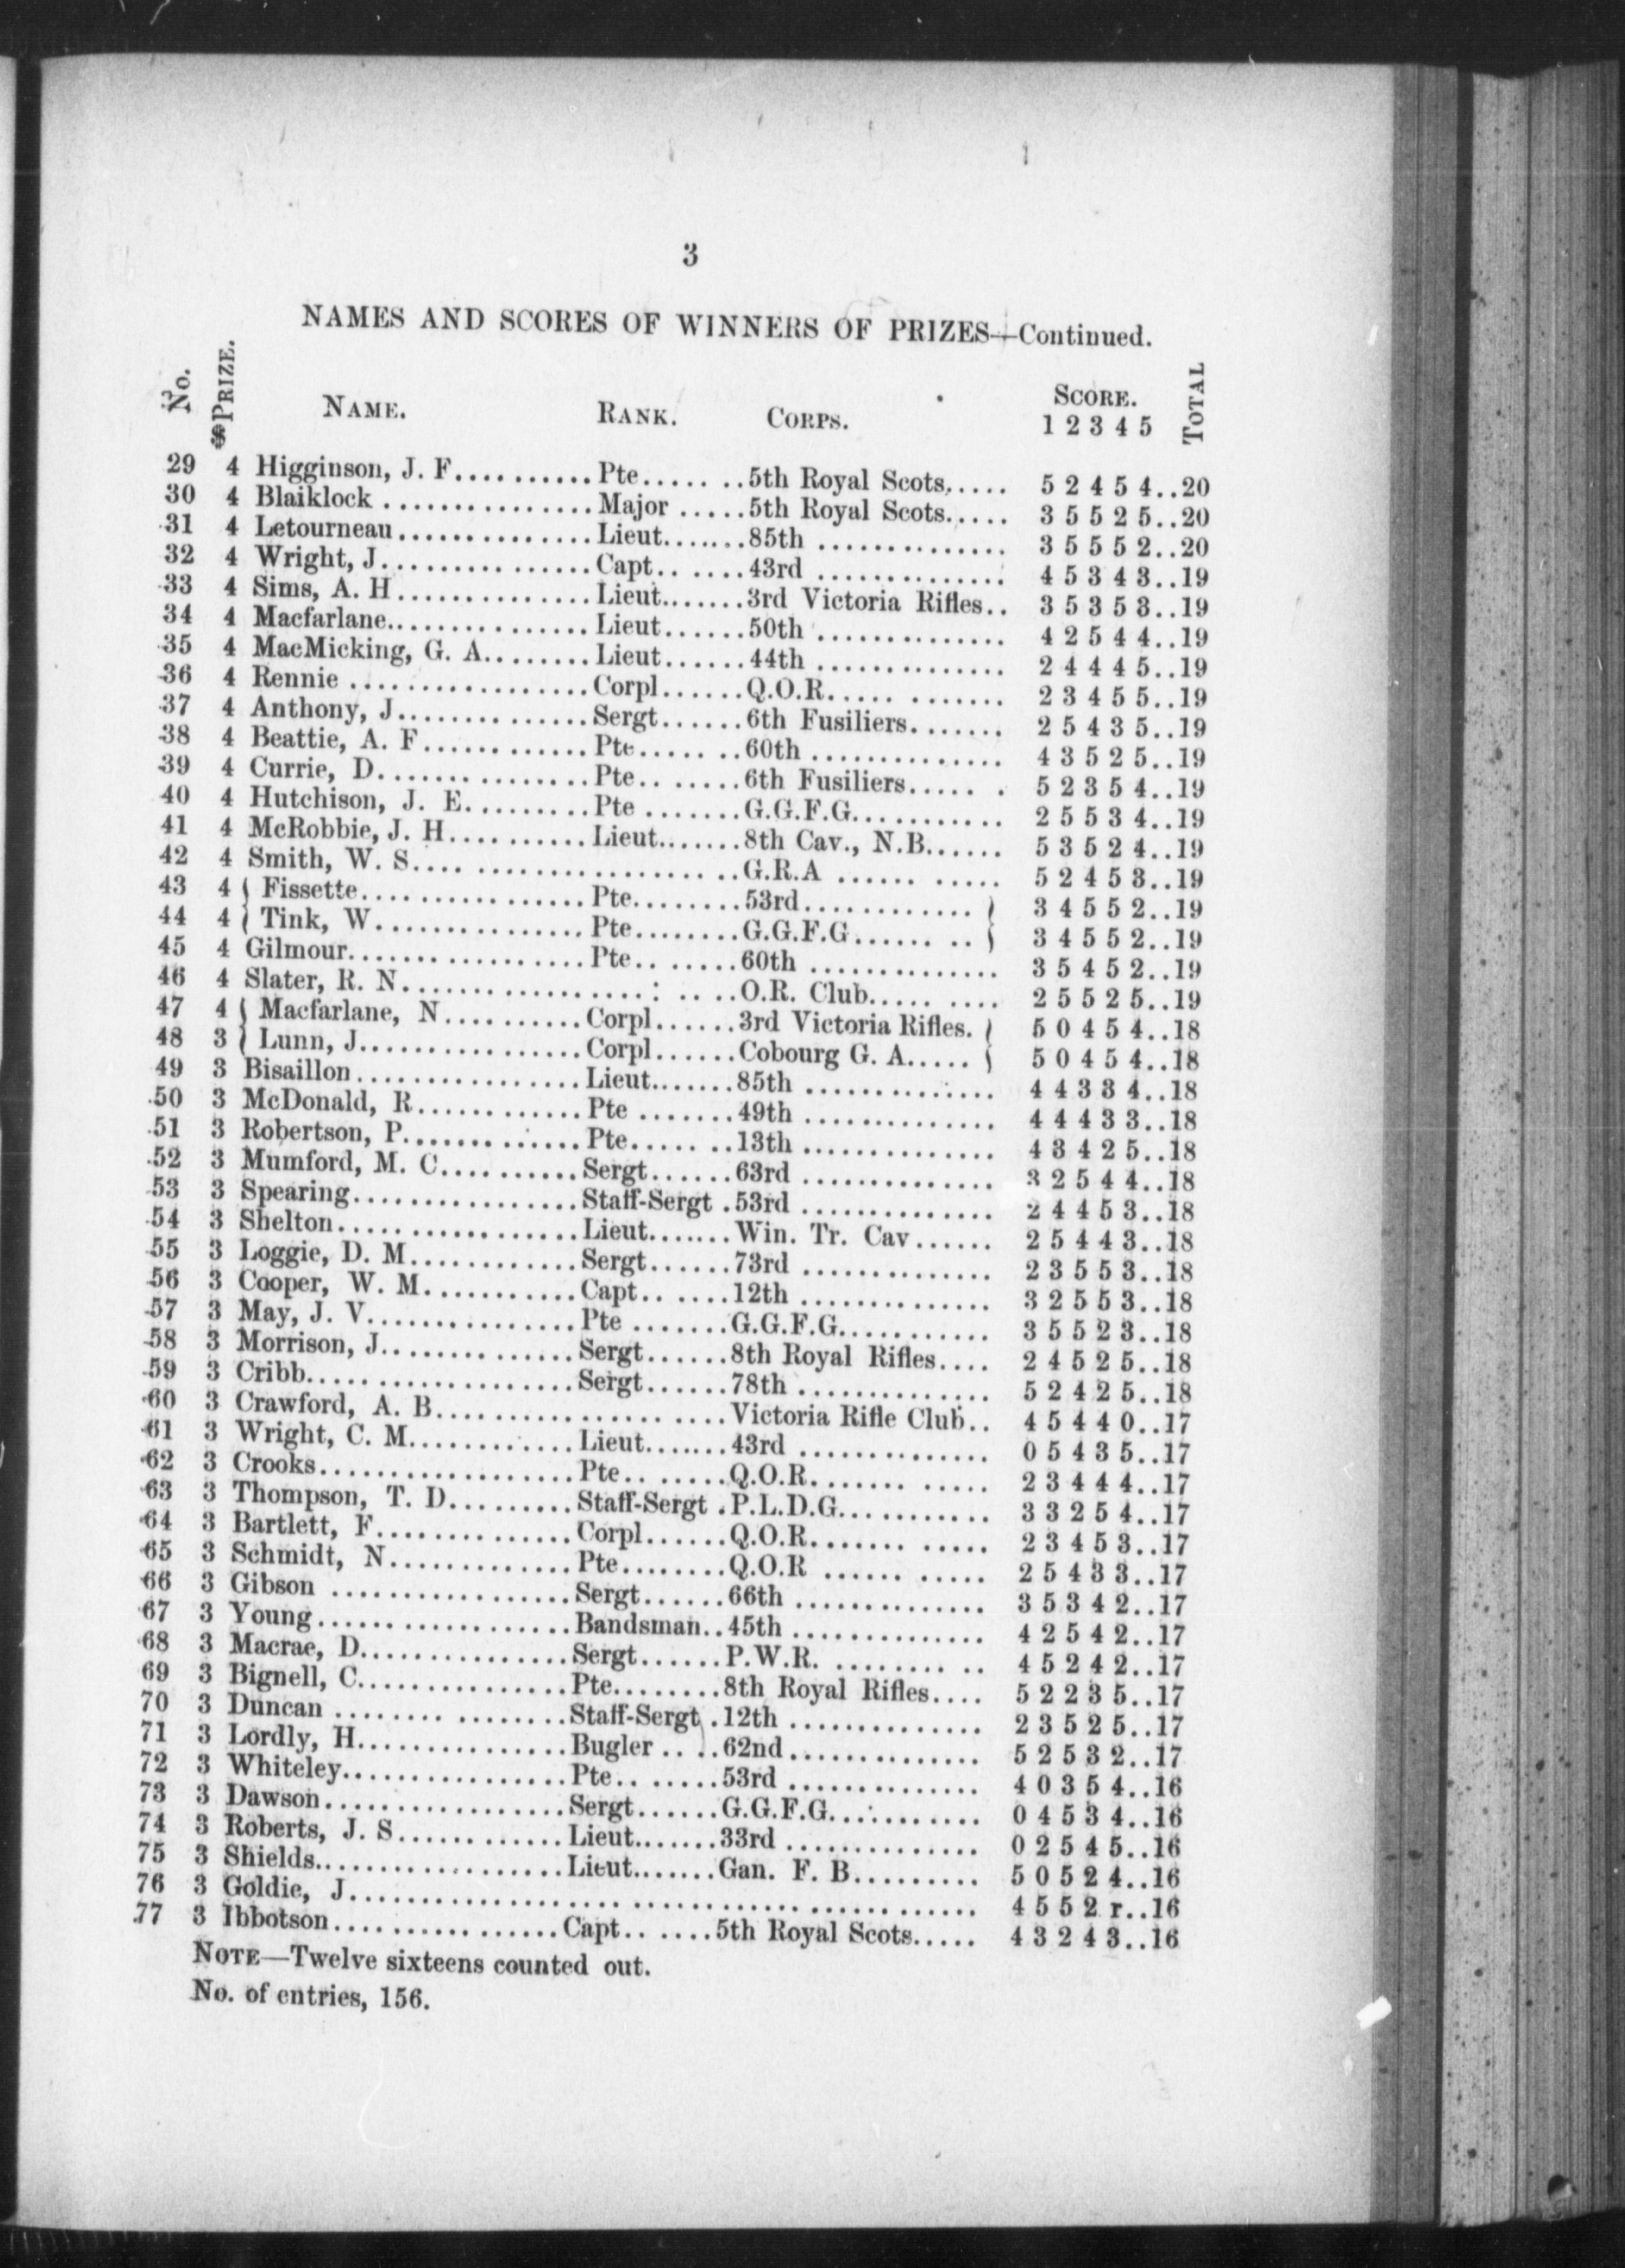 3
NAMES AND SCORES OF WINNERS OF PRIZES—Continued.
No. $ PRIZE. NAME. RANK. CORPS. SCORE. TOTAL
1 2 3 4 5
29 4 Higginson, J. F..........Pte.......5th Royal Scots..... 5 2 4 5 4..20
30 4 Blaiklock ...............Major .....5th Royal Scots..... 3 5 5 2 5..20
31 4 Letourneau..............Lieut.......85th .............. 3 5 5 5 2..20
32 4 Wright, J................Capt.. ....43rd .............. 4 5 3 4 3..19
33 4 Sims, A. H..............Lieut.......3rd Victoria Rifles.. 3 5 3 5 3..19
34 4 Macfarlane...............Lieut......50th .............. 4 2 5 4 4..19
35 4 MacMicking, G. A........Lieut......44th .............. 2 4 4 4 5..19
36 4 Rennie .................Corpl......Q.O.R..... ....... 2 3 4 5 5..19
37 4 Anthony, J..............Sergt......6th Fusiliers....... 2 5 4 3 5..19
38 4 Beattie, A. F............Pte..... ..60th .............. 4 3 5 2 5..19
39 4 Currie, D................Pte.. .....6th Fusiliers..... . 5 2 3 5 4..19
40 4 Hutchison, J. E.........Pte .......G.G.F.G........... 2 5 5 3 4..19
41 4 McRobbie, J. H..........Lieut.......8th Cav., N.B...... 5 3 5 2 4..19
42 4 Smith, W. S.... ...................G.R.A ...... ..... 5 2 4 5 3..19
43 4 { Fissette.................Pte........53rd............. } 3 4 5 5 2..19
44 4 { Tink, W...............Pte........G.G.F.G...... .. } 3 4 5 5 2..19
45 4 Gilmour..................Pte.. ......60th .............. 3 5 4 5 2..19
46 4 Slater, R. N..................: ....O.R. Club..... .... 2 5 5 2 5..19
47 4 { Macfarlane, N..........Corpl......3rd Victoria Rifles. } 5 0 4 5 4..18
48 3 { Lunn, J................Corpl......Cobourg G. A..... } 5 0 4 5 4..18
49 3 Bisaillon.................Lieut.......85th .............. 4 4 3 3 4..18
50 3 McDonald, R............Pte .......49th .............. 4 4 4 3 3..18
51 3 Robertson, P.............Pte..... ..13th .............. 4 3 4 2 5..18
52 3 Mumford, M. C..........Sergt......63rd .............. 3 2 5 4 4..18
53 3 Spearing.................Staff-Sergt .53rd .............. 2 4 4 5 3..18
54 3 Shelton.... .............Lieut.......Win. Tr. Cav...... 2 5 4 4 3..18
55 3 Loggie, D. M............Sergt......73rd .............. 2 3 5 5 3..18
56 3 Cooper, W. M...........Capt.. ....12th .............. 3 2 5 5 3..18
57 3 May, J. V...............Pte .......G.G.F.G........... 3 5 5 2 3..18
58 3 Morrison, J..............Sergt......8th Royal Rifles.... 2 4 5 2 5..18
59 3 Cribb....................Sergt......78th .............. 5 2 4 2 5..18
60 3 Crawford, A. B......................Victoria Rifle Club.. 4 5 4 4 0..17
61 3 Wright, C. M............Lieut.......43rd .............. 0 5 4 3 5..17
62 3 Crooks...................Pte.. .....Q.O.R........ ..... 2 3 4 4 4..17
63 3 Thompson, T. D.........Staff-Sergt .P.L.D.G........... 3 3 2 5 4..17
64 3 Bartlett, F..............Corpl......Q.O.R....... ..... 2 3 4 5 3..17
65 3 Schmidt, N.............Pte........Q.O.R ...... ..... 2 5 4 3 3..17
66 3 Gibson .................Sergt......66th .............. 3 5 3 4 2..17
67 3 Young...................Bandsman..45th .............. 4 2 5 4 2..17
68 3 Macrae, D...............Sergt......P.W.R. ........ .. 4 5 2 4 2..17
69 3 Bignell, C................Pte........8th Royal Rifles.... 5 2 2 3 5..17
70 3 Duncan ........ ........Staff-Sergt .12th .............. 2 3 5 2 5..17
71 3 Lordly, H................Bugler .. ..62nd.............. 5 2 5 3 2..17
72 3 Whiteley.................Pte.. ......53rd .............. 4 0 3 5 4..16
73 3 Dawson..................Sergt......G.G.F.G........... 0 4 5 3 4..16
74 3 Roberts, J. S............Lieut.......33rd .............. 0 2 5 4 5..16
75 3 Shields..................Lieut.......Gan. F. B......... 5 0 5 2 4..16
76 3 Goldie, J............................................... 4 5 5 2 r..16
77 3 Ibbotson.................Capt.. ....5th Royal Scots..... 4 3 2 4 3..16
NOTE—Twelve sixteens counted out.
No. of entries, 156.